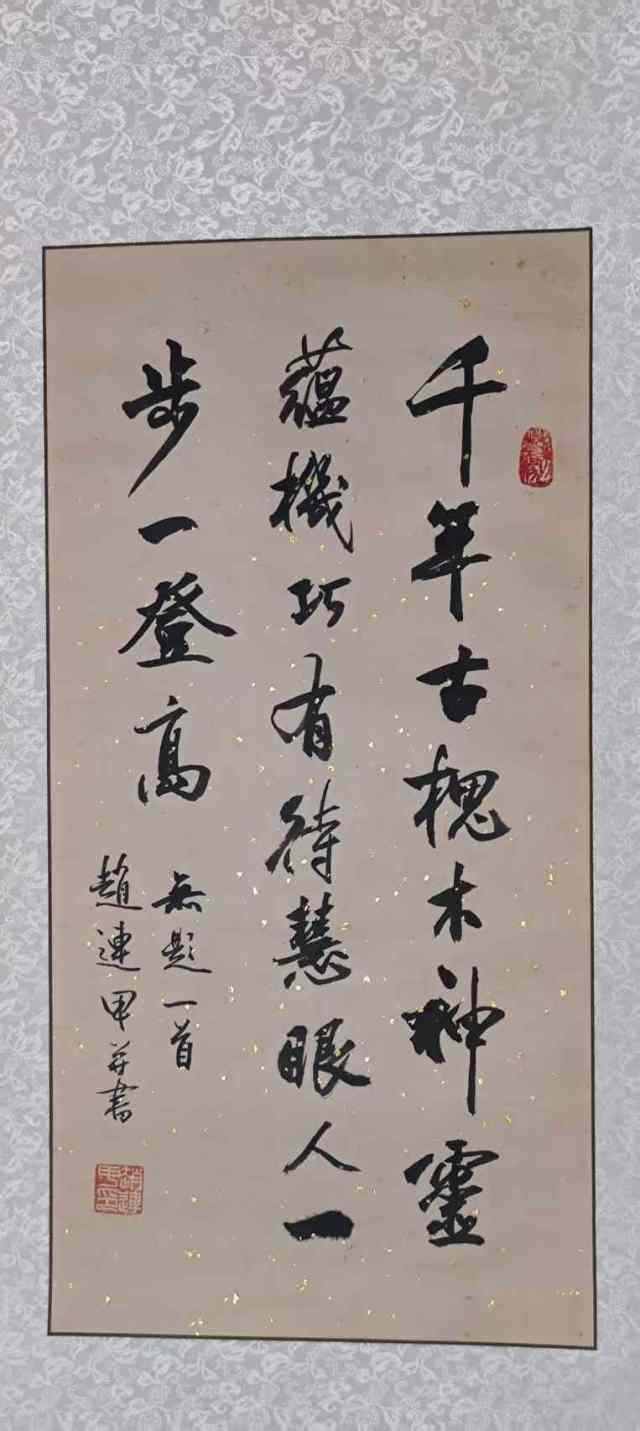 千年古槐木神靈
蘊機巧有待慧眼人一
步一登高
無題一首
趙連甲并書